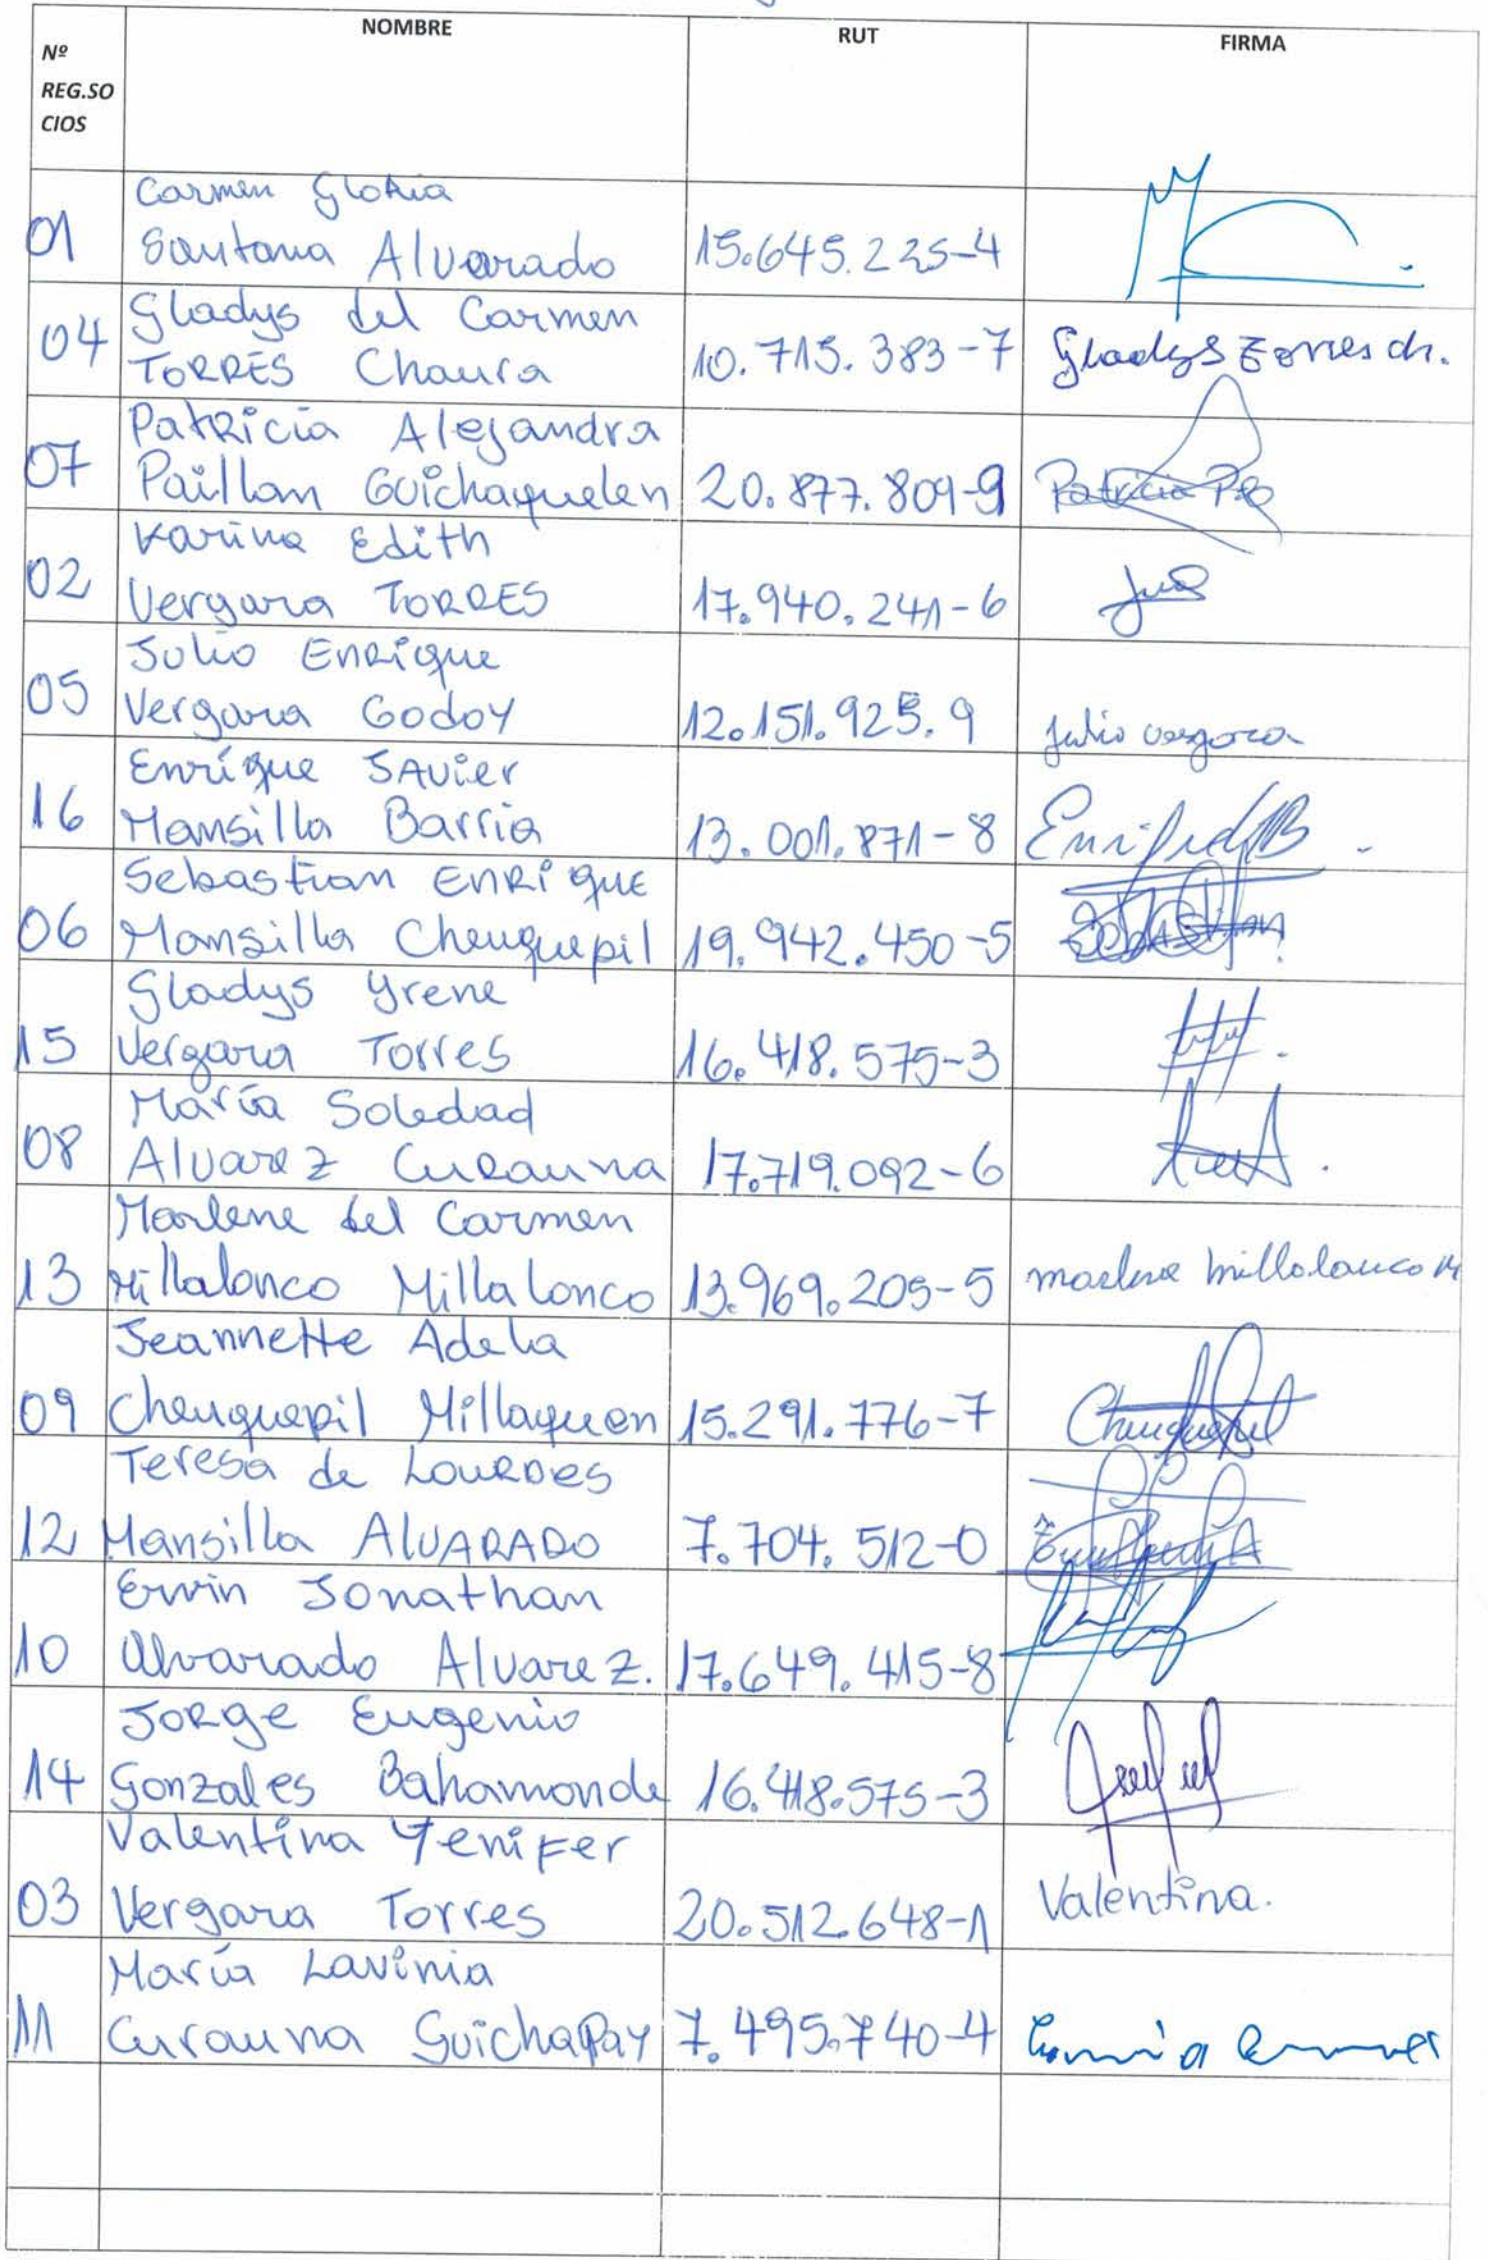 Nº
REG.SO
CIOS
NOMBRE
RUT
FIRMA
Carmen Gloria
01 Santana Alvarado 15.645.225-4
Gladys del Carmen
04 TORRES Chaura 10.715.383-7 Gladys Torres ch.
Patricia Alejandra
07 Paillan Guichaquelen 20.877.809-9 Patricia
Karina Edith
02 Vergara TORRES 17.940.241-6
Julio Enrique
05 Vergara Godoy 12.151.925.9 Julio vergara
Enrique Javier
16 Mansilla Barria 13.001.871-8
Sebastian ENRIQUE
06 Mansilla Cheuquepil 19.942.450-5 Sebastian
Gladys Yrene
15 Vergara Torres 16.418.575-3
María Soledad
08 Alvarez Curauna 17.719.092-6
Marlene del Carmen
13 Millalonco Millalonco 13.969.205-5 marlene millalonco M
Jeannette Adela
09 Cheuquepil Millaquen 15.291.776-7 Cheuquepil
Teresa de Lourdes
12 Mansilla ALVARADO 7.704.512-0
Erwin Jonathan
10 Alvarado Alvarez. 17.649.415-8
Jorge Eugenio
14 Gonzales Bahamonde 16.418.575-3
Valentina Yenifer
03 Vergara Torres 20.512.648-1 Valentina.
María Lavinia
11 Curauna Guichapay 7.495.740-4